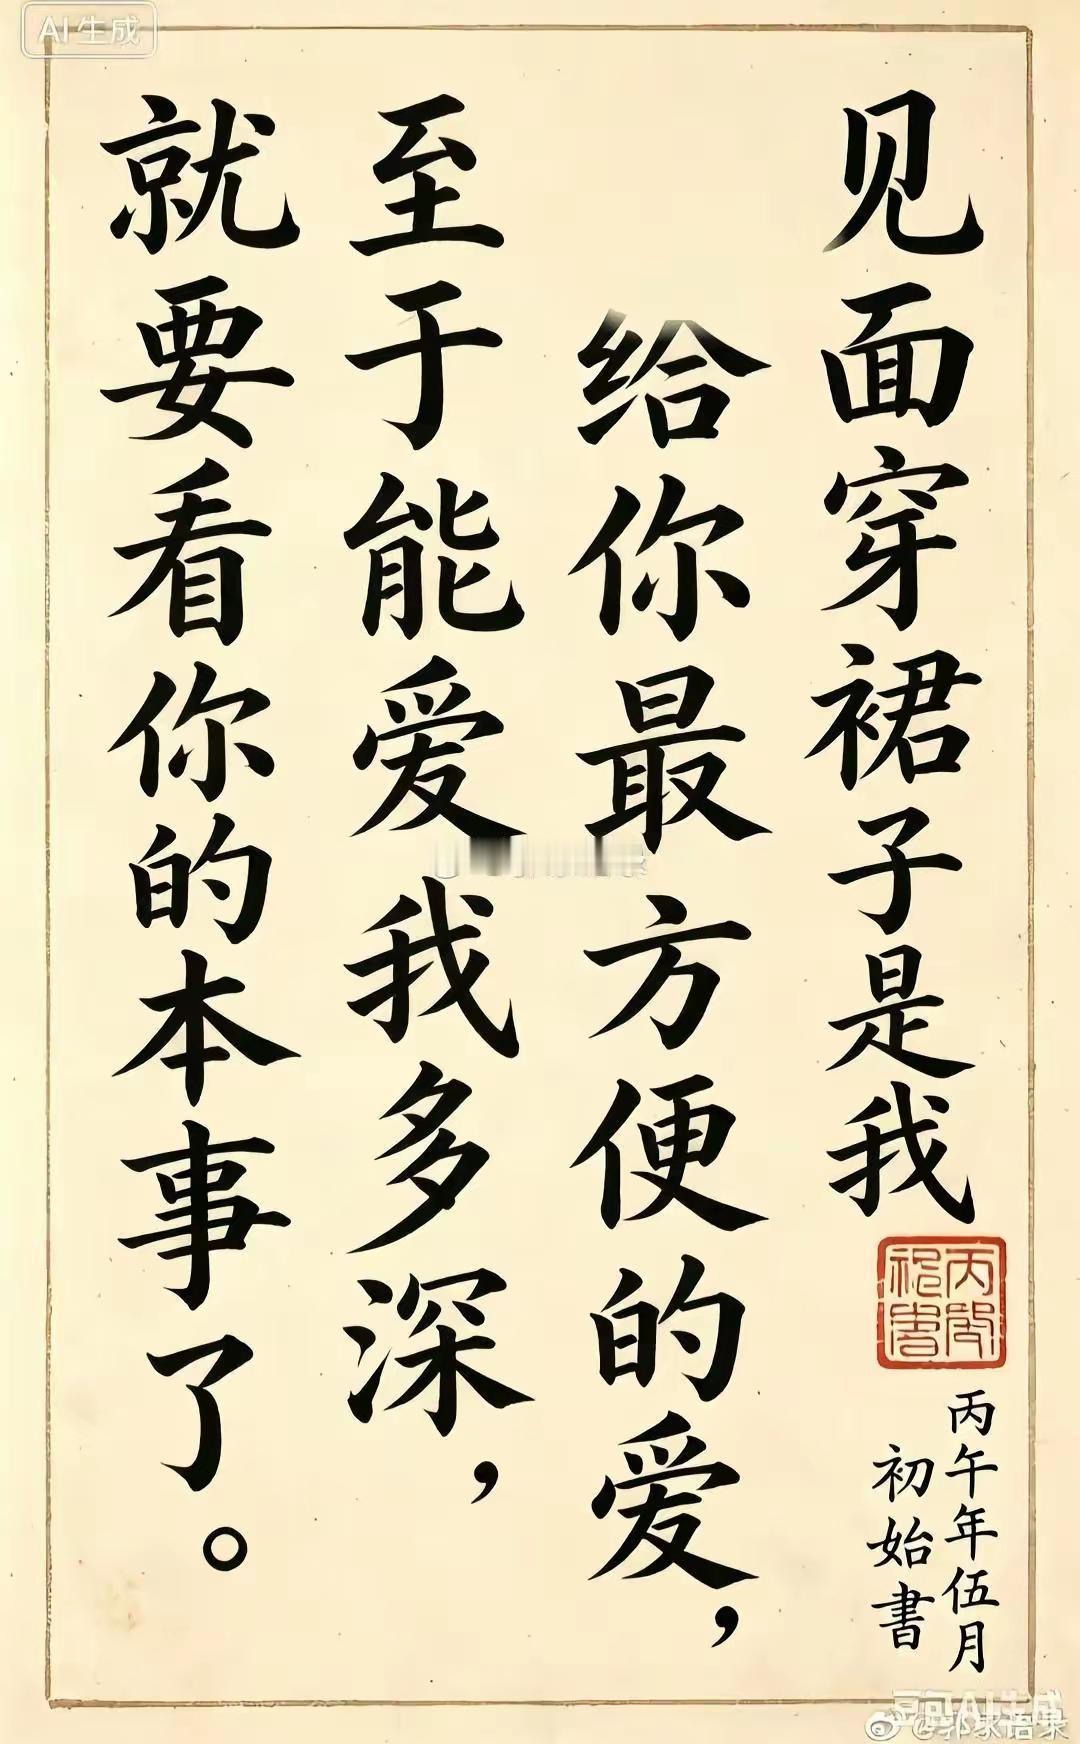 AI生成
见面穿裙子是我
给你最方便的爱，
至于能爱我多深，
就要看你的本事了。
丙午年伍月
初始書
豆包AI生成